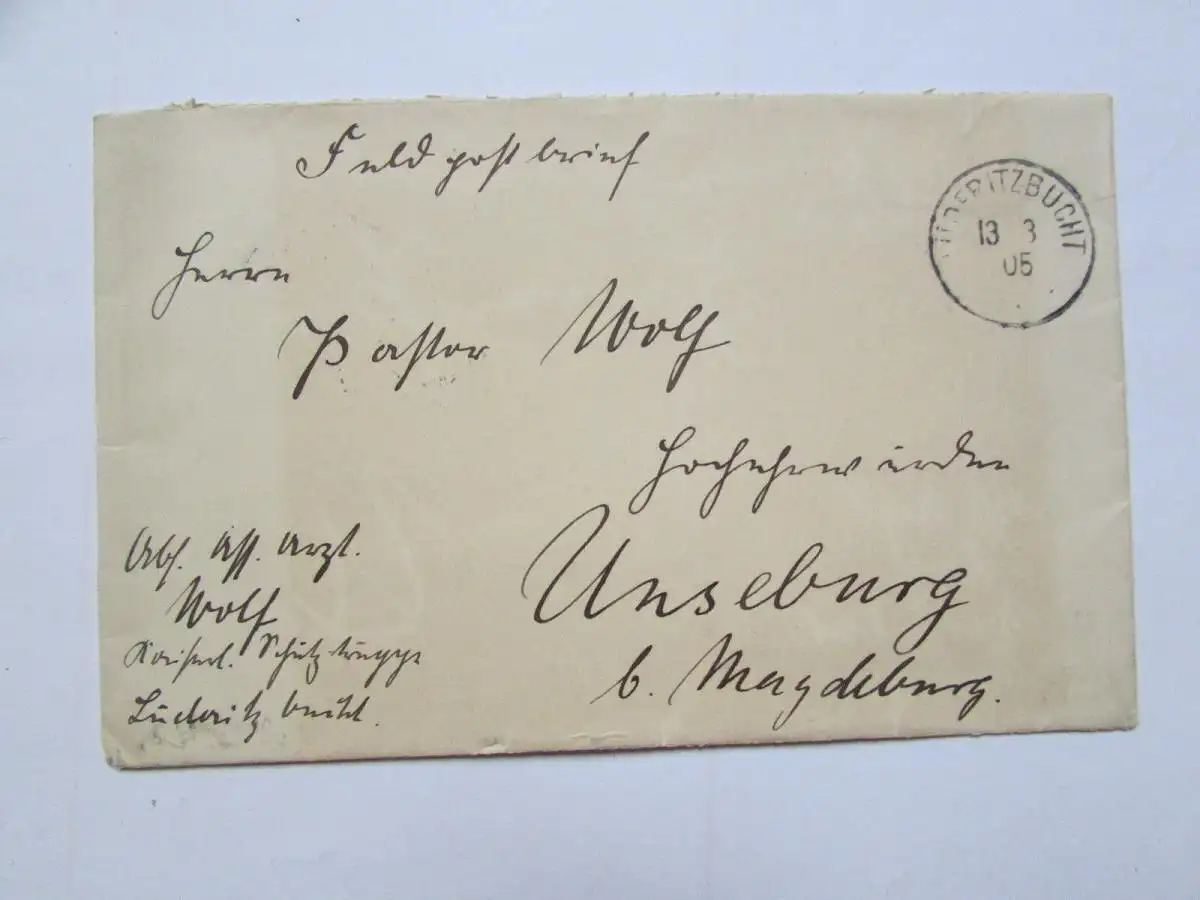 Feldpostbrief
LÜDERITZBUCHT
13 3
05
Herrn
Pastor Wolf
Hochehrwürden
Unseburg
b. Magdeburg.
Abs. Ass. Arzt.
Wolf
Kaiserl. Schutztruppe
Lüderitzbucht.